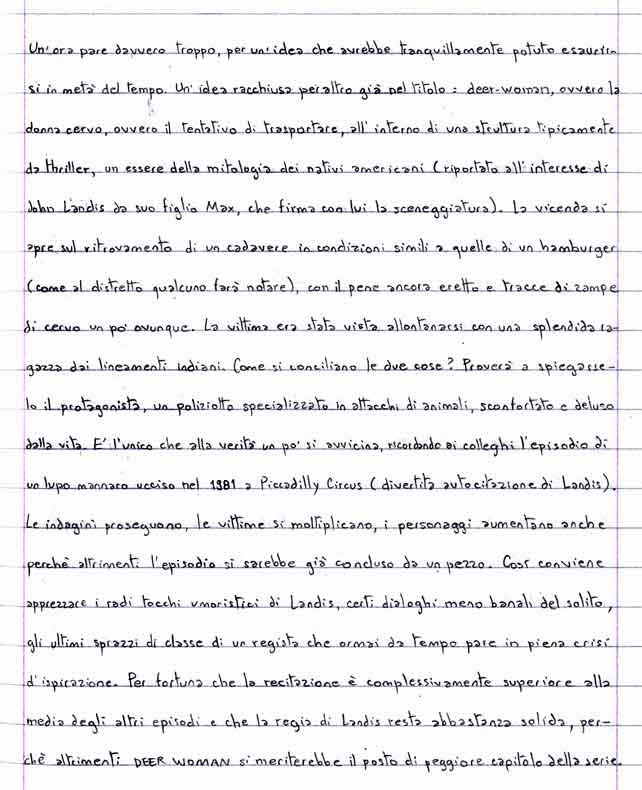 Un'ora pare davvero troppo, per un'idea che avrebbe tranquillamente potuto esaurir-
si in metà del tempo. Un'idea racchiusa peraltro già nel titolo: deer-woman, ovvero la
donna cervo, ovvero il tentativo di trasportare, all'interno di una struttura tipicamente
da thriller, un essere della mitologia dei nativi americani (riportato all'interesse di
John Landis da suo figlio Max, che firma con lui la sceneggiatura). La vicenda si
apre sul ritrovamento di un cadavere in condizioni simili a quelle di un hamburger
(come al distretto qualcuno farà notare), con il pene ancora eretto e tracce di zampe
di cervo un po' ovunque. La vittima era stata vista allontanarsi con una splendida ra-
gazza dai lineamenti indiani. Come si conciliano le due cose? Proverà a spiegarse-
lo il protagonista, un poliziotto specializzato in attacchi di animali, sconfortato e deluso
dalla vita. E' l'unico che alla verità un po' si avvicina, ricordando ai colleghi l'episodio di
un lupo mannaro ucciso nel 1981 a Piccadilly Circus (divertita autocitazione di Landis).
Le indagini proseguono, le vittime si moltiplicano, i personaggi aumentano anche
perchè altrimenti l'episodio si sarebbe già concluso da un pezzo. Così conviene
apprezzare i radi tocchi umoristici di Landis, certi dialoghi meno banali del solito,
gli ultimi sprazzi di classe di un regista che ormai da tempo pare in piena crisi
d'ispirazione. Per fortuna che la recitazione è complessivamente superiore alla
media degli altri episodi e che la regia di Landis resta abbastanza solida, per-
chè altrimenti DEER WOMAN si meriterebbe il posto di peggiore capitolo della serie.